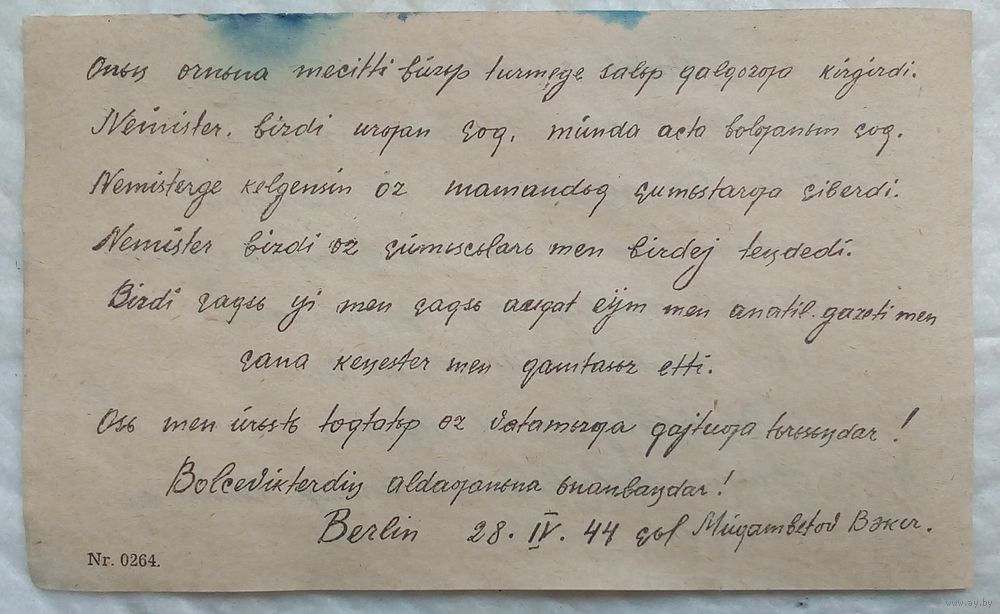 Onьꞑ ornьna mecitti búzьp turmege salьp qalqozƣa kirgirdi.
Nemister. bizdi urƣan çoq, múnda acta bolƣanьm çoq.
Nemisterge kelgensin oz mamandьq çumьstarƣa çiberdi.
Nemister bizdi oz çúmьscьlarь men birdej teꞑdedi.
Bizdi çaqsь yi men çaqsь auqat men anatil gazeti men
çana keꞑester men qamtasьz etti.
Osь men úrьstь toqtatьp oz vatamьzƣa qajtuƣa tьrьsьꞑdar!
Bolcevikterdiꞑ aldaƣanьna ьnanbaꞑdar!
Berlin 28. IV. 44 çьl Múqambetov Bəkir.
Nr. 0264.
www.ay.by